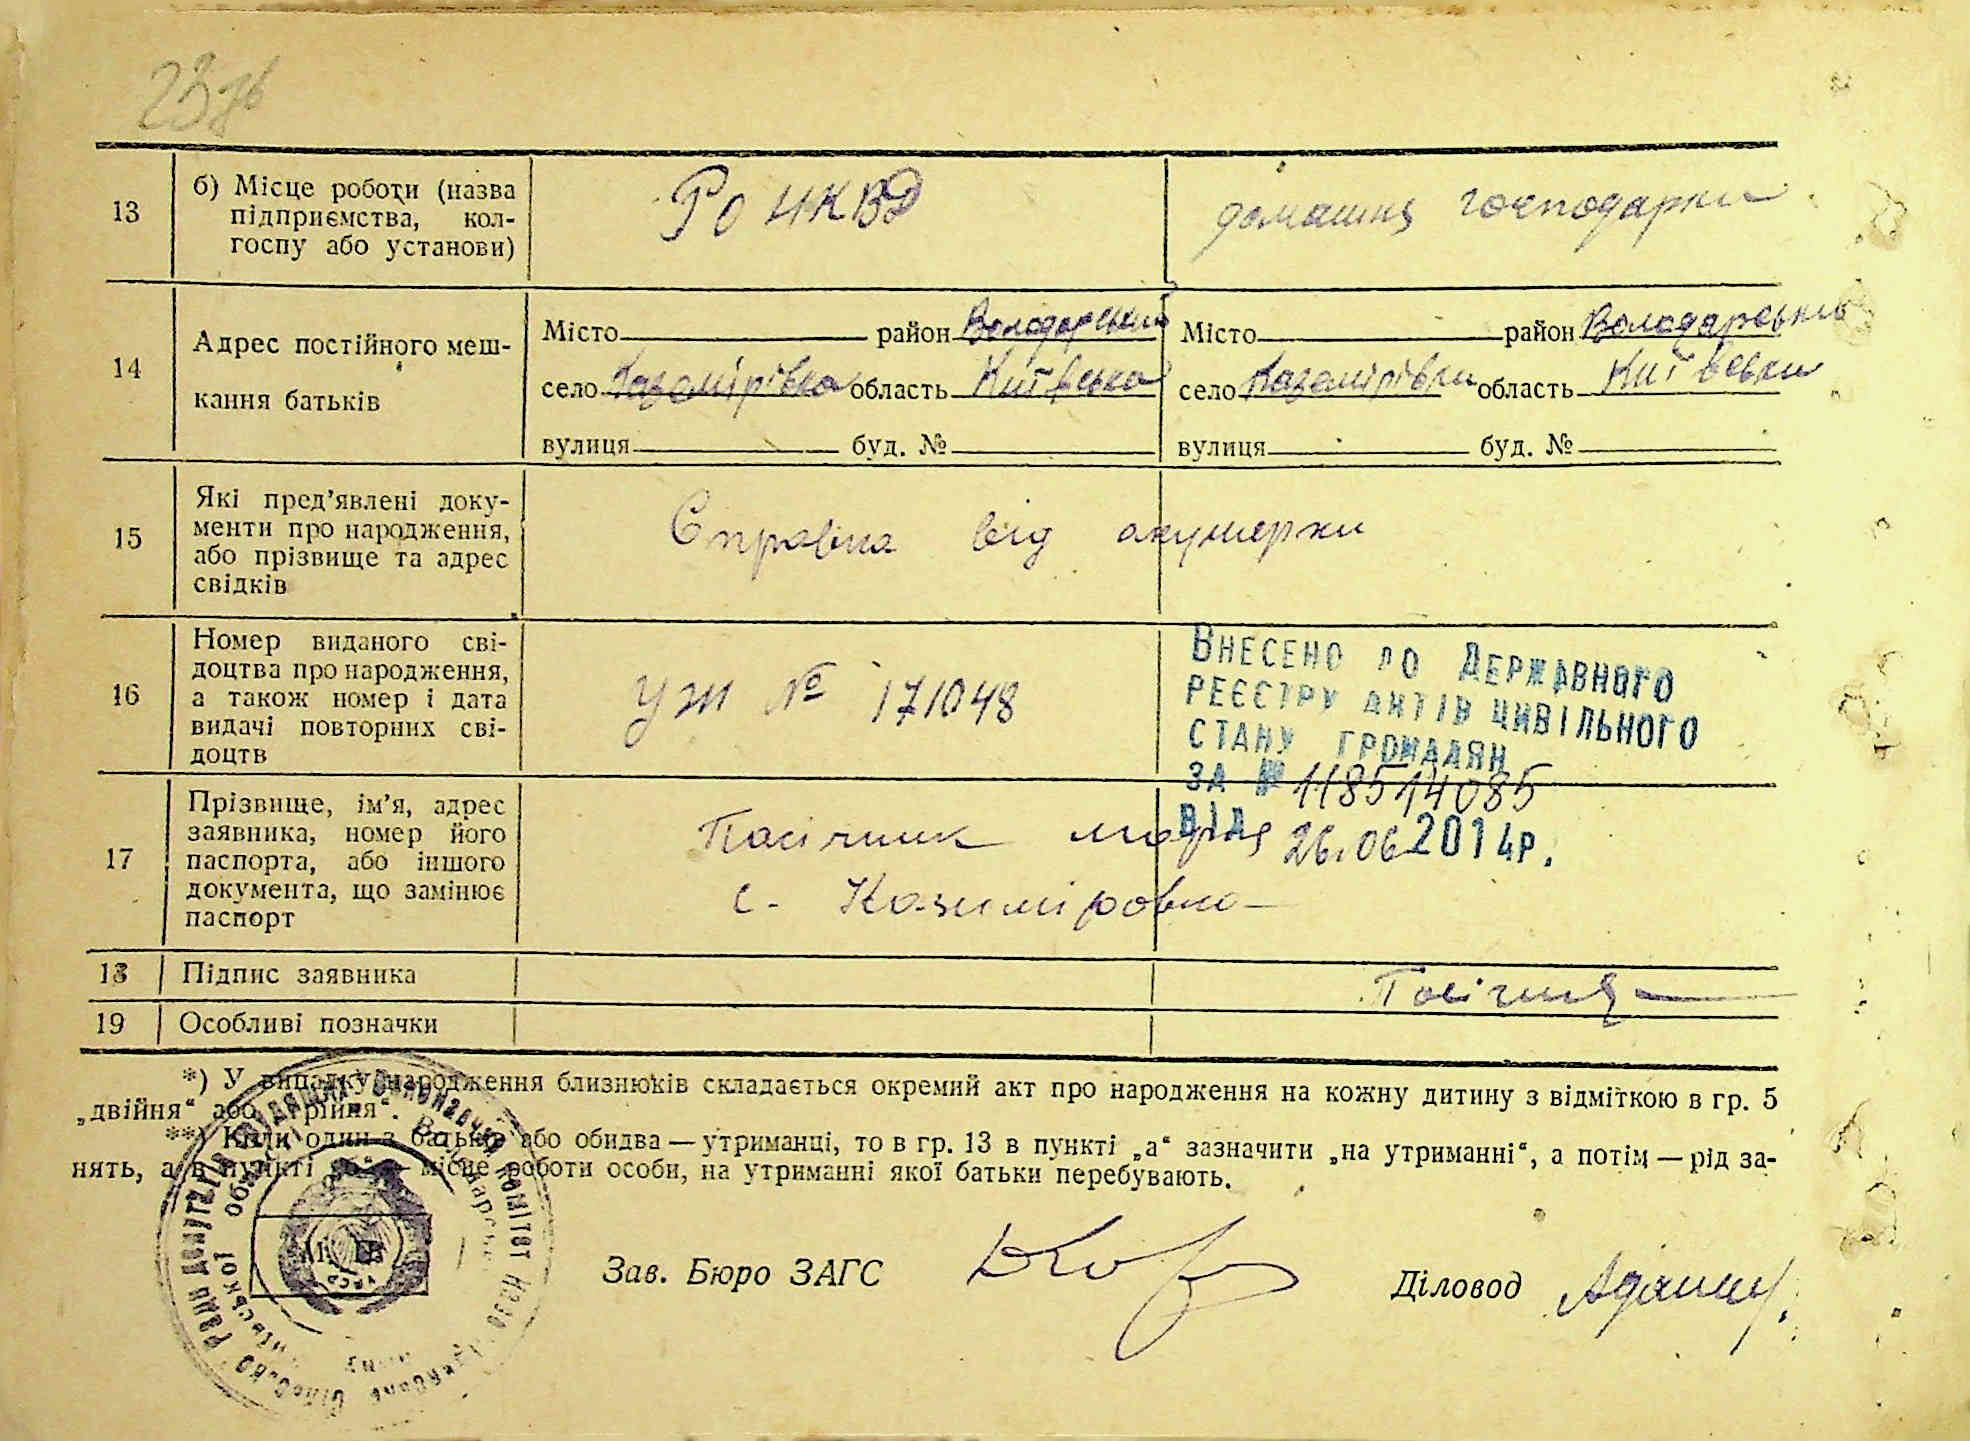 23 зв
13 б) Місце роботи (назва РО НКВД домашня господарка
підприємства, кол-
госпу або установи)
14 Адрес постійного меш-
кання батьків
Місто район Володарський Місто район Володарський
село Казимірівка область Київська село Казимірівки область Київськи
вулиця буд. № вулиця буд. №
15 Які пред’явлені доку-
менти про народження, Справка від акушерки
або прізвище та адрес
свідків
16 Номер виданого сві-
доцтва про народження,
а також номер і дата УЖ № 171048
видачі повторних сві-
доцтв
Внесено до Державного
реєстру актів цивільного
стану громадян
за № 118514085
від 26.06 2014р.
17 Прізвище, ім’я, адрес
заявника, номер його Пасічник Марія
паспорта, або іншого
документа, що замінює с. Казиміровка
паспорт
18 Підпис заявника
19 Особливі позначки
*) У випадку народження близнюків складається окремий акт про народження на кожну дитину з відміткою в гр. 5
„двійня“ або „трійня“.
**) Коли один з батьків або обидва — утриманці, то в гр. 13 в пункті „а“ зазначити „на утриманні“, а потім — рід за-
нять, а в пункті „б“ — місце роботи особи, на утриманні якої батьки перебувають.
Зав. Бюро ЗАГС Діловод